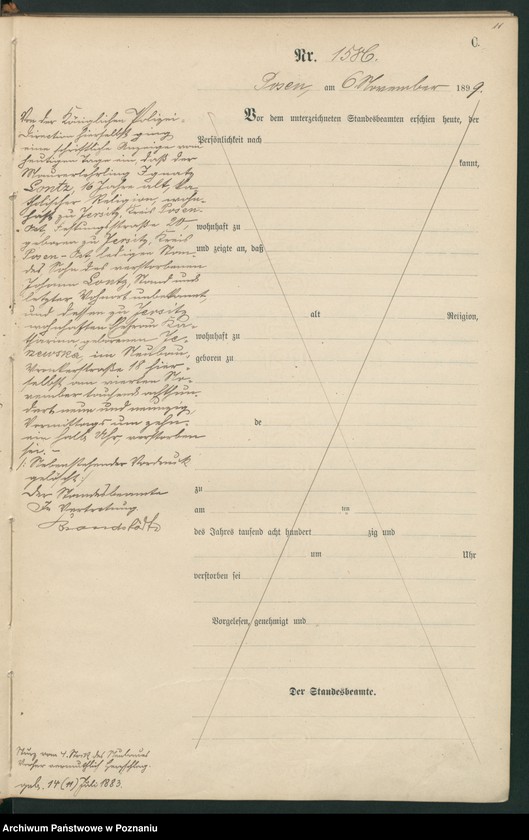 11
C.
Nr. 1586.
Posen, am 6 November 1899.
Von der Königlichen Polizei-
direktion hierselbst ging
eine schriftliche Anzeige vom
heutigen Tage ein, daß der
Maurerlehrling Ignatz
Lontz, 16 Jahre alt, ka-
tholischer Religion, wohn-
haft zu Jersitz, Kreis Posen-
Ost, 20,
geboren zu Jersitz, Kreis
Posen-Ost, ledigen Stan-
des Sohn des verstorbenen
Johann Lontz, Stand und
letzter Wohnort unbekannt,
und dessen zu Jersitz
wohnhaften Ehefrau Ka-
tharina geborenen
im Neubau,
18 hier-
selbst am vierten No-
vember tausend achthun-
dert neun und neunzig
Vormittags um zehn-
ein halb Uhr verstorben
sei. –
/: Nebenstehender Vordruck
gelöscht :/
Der Standesbeamte
In Vertretung
Vor dem unterzeichneten Standesbeamten erschien heute, der
Persönlichkeit nach
kannt,
wohnhaft zu
und zeigte an, daß
alt Religion,
wohnhaft zu
geboren zu
de
zu
am ten
des Jahres tausend acht hundert zig und
um Uhr
verstorben sei
Vorgelesen, genehmigt und
Der Standesbeamte.
Sturz vom 4. Stock des Neubaues
vermuthlich Herzschlag.
geb. 14 (11) Juli 1883.
Archiwum Państwowe w Poznaniu